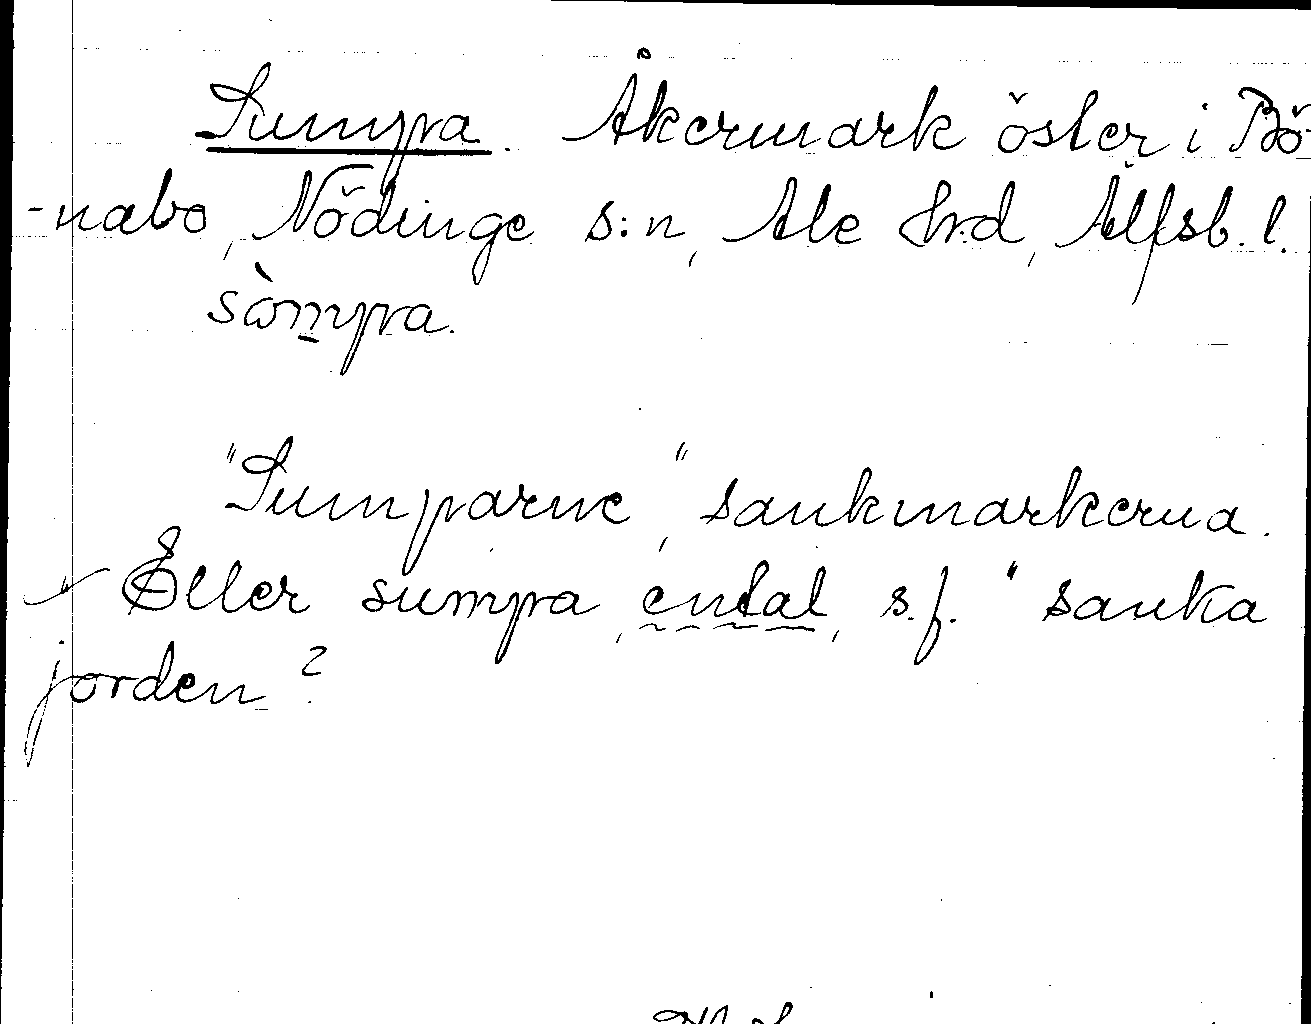 Sumpra. Åkermark öster i Bö-
-nabo, Nödinge s:n, Ale hrd, Älfsb. l.
sòmpra.
"Sumparne", sankmarkerna.
Eller sumpra, ental, s.f. " sanka
jorden?